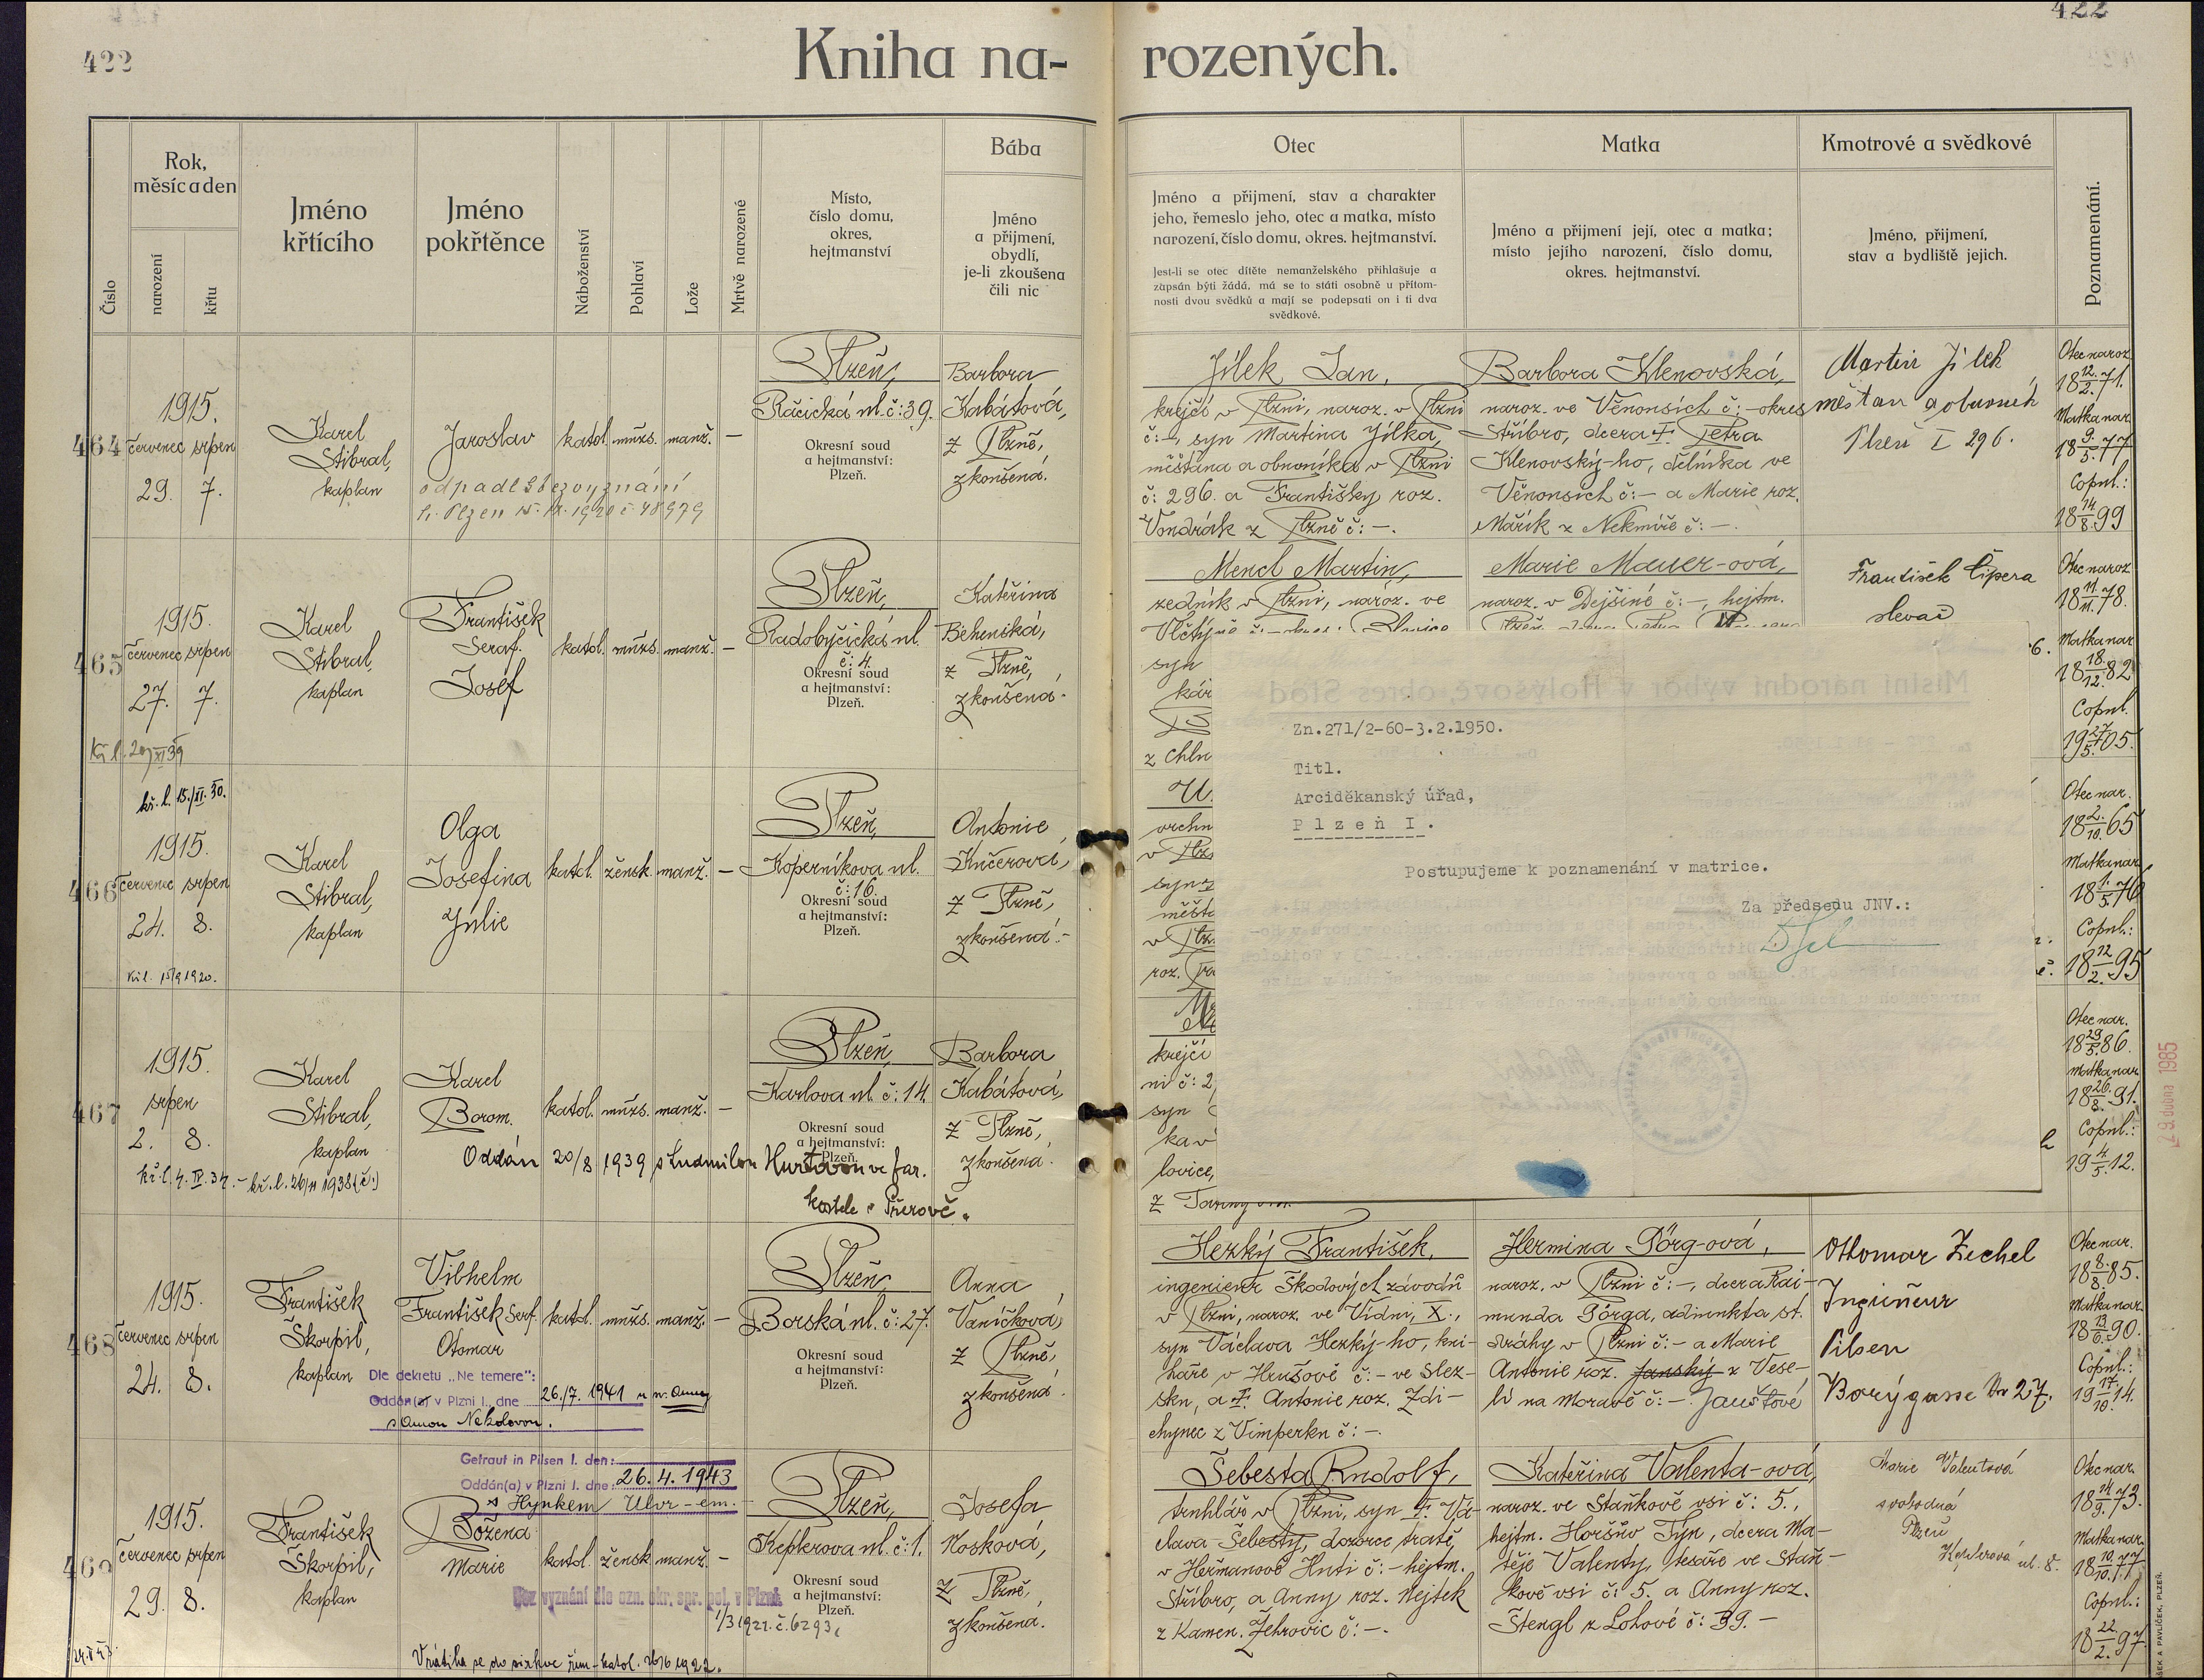 422
422
Kniha narozených.
Číslo
Rok, měsíc a den
narození
křtu
Jméno křtícího
Jméno pokřtěnce
Náboženství
Pohlaví
Lože
Mrtvě narozené
Místo, číslo domu, okres, hejtmanství
Bába
Jméno a přijmení, obydlí, je-li zkoušena čili nic
Otec
Jméno a přijmení, stav a charakter
jeho, řemeslo jeho, otec a matka, místo
narození, číslo domu, okres. hejtmanství.
Jest-li se otec dítěte nemanželského přihlašuje a
zapsán býti žádá, má se to státi osobně u přítom-
nosti dvou svědků a mají se podepsati on i ti dva
svědkové.
Matka
Jméno a přijmení její, otec a matka;
místo jejího narození, číslo domu,
okres. hejtmanství.
Kmotrové a svědkové
Jméno, přijmení,
stav a bydliště jejich.
Poznamenání.
464
1915.
červenec srpen
29. 7.
Karel
Stibral,
kaplan
Jaroslav
katol. mužs. manž. –
odpadl bezvyznání
Plzeň,
Ráčická ul. č: 39.
Okresní soud
a hejtmanství:
Plzeň.
Barbora
Kabátová,
z Plzně,
zkoušená.
Jílek Jan,
krejčí v Plzni, naroz. v Plzni
č: –, syn Martina Jílka,
měšťana a obuvníka v Plzni
č: 296. a Františky roz.
Vondrák z Plzně č: –.
Barbora Klenovská,
naroz. ve Věnousích č: – okres
Stříbro, dcera † Petra
Klenovský-ho, dělníka ve
Věnousích č: – a Marie roz.
Mařík z Nekmíře č: –.
Martin Jílek
měšťan a obuvník
Plzeň I 296.
Otec naroz.
18 12./2. 71.
Matka nar.
18 9./5. 77
Copul.:
18 14/8. 99
465
1915.
červenec srpen
27. 7.
Karel
Stibral,
kaplan
František
Seraf.
Josef
katol. mužs. manž. –
Plzeň,
Radobyčická ul.
č: 4.
Okresní soud
a hejtmanství:
Plzeň.
Kateřina
z Plzně,
zkoušená.
Mencl Martin,
zedník v Plzni, naroz. ve
syn
kár
z Chln
Marie Mauer-ová,
naroz. v Dejšině č: –, hejtm.
František Čipera
slevač
6.
Otec naroz.
18 11/11. 78.
Matka nar.
18 18./12. 82
Copul.
19 27/5. 05.
kř. l. 15./XI. 30.
466
1915.
červenec srpen
24. 8.
Karel
Stibral,
kaplan
Olga
Josefina
Julie
katol. žensk. manž. –
Plzeň,
Koperníkova ul.
č: 16.
Okresní soud
a hejtmanství:
Plzeň.
Antonie
Kučerová,
z Plzně,
zkoušená.–
syn
měšť
roz.
Otec nar.
18 2./10. 65
Matka nar.
18 1./5. 76
Copul.:
18 12/2. 95
467
1915.
srpen
2. 8.
Karel
Stibral,
kaplan
kř. l. 26/11 1938 (č.)
Karel
Borom.
katol. mužs. manž. –
Oddán 20/8 1939 s Ludmilou Hurtovou ve far.
kostele v Přerově.
Plzeň,
Karlova ul. č: 14
Okresní soud
a hejtmanství:
Plzeň.
Barbora
Kabátová,
z Plzně,
zkoušená.
krejčí
ni č: 2,
syn
kav
lovice,
Otec nar.
18 29/5. 86.
Matka nar.
18 26./8. 91.
Copul.:
19 4/5. 12.
Zn.271/2-60-3.2.1950.
Titl.
Arciděkanský úřad,
Plzeň I.
Postupujeme k poznamenání v matrice.
Za předsedu JNV.:
Místní národní výbor v Holýšově, okres Stod
29. dubna 1985
468
1915.
červenec srpen
24. 8.
František
Škorpil,
kaplan
Vilhelm
František Serf.
Otomar
katol. mužs. manž. –
Dle dekretu „Ne temere":
Oddán(a) v Plzni I., dne 26./7. 1941 u sv. Anny
s Annou Nekolovou.
Plzeň,
Borská ul. č: 27.
Okresní soud
a hejtmanství:
Plzeň.
Anna
Vaníčková,
z Plzně,
zkoušená.
Hezký František,
ingenieur Škodových závodů
v Plzni, naroz. ve Vídni, X.,
syn Václava Hezký-ho, kni-
haře v Hrušově č: – ve Slez-
sku, a †. Antonie roz. Zdi-
chynec z Vimperku č: –.
Hermina Görg-ová,
naroz. v Plzni č: –, dcera Rai-
munda Görga, adjunkta st.
dráhy v Plzni č: – a Marie
Antonie roz. Janský z Vese-
lí na Moravě č: –. Jaušťové
Othomar Zechel
Ingineur
Pilsen
Borýgasse Nr 27.
Otec nar.
18 8./8. 85.
Matka nar.
18 13/6. 90.
Copul.:
19 17./10. 14.
469
1915.
červenec srpen
29. 8.
František
Škorpil,
kaplan
Getraut in Pilsen I. den:
Oddán(a) v Plzni I. dne: 26. 4. 1943
s Hynkem Ulvr-em.
Božena
Marie
katol. žensk. manž. –
Bez vyznání dle ozn. okr. spr. pol. v Plzni
1/3 1921. č. 6293.
Vrátila se do církve řím-katol. 26/6 1922.
Plzeň,
Keplerova ul. č: 1.
Okresní soud
a hejtmanství:
Plzeň.
Josefa
Hosková,
z Plzně,
zkoušená.
Šebesta Rudolf,
truhlář v Plzni, syn †. Vá-
clava Šebesty, dozorce tratě,
v Heřmanově Huti č: – hejtm.
Stříbro, a Anny roz. Hejtek
z Kamen. Žehrovic č: –.
Kateřina Valenta-ová,
naroz. ve Staňkově vsi č: 5.,
hejtm. Horšův Týn, dcera Ma-
těje Valenty, tesaře ve Staň-
kově vsi č: 5. a Anny roz.
Štengl z Lohové č: 39. –
Marie Valentová
svobodná
Plzeň
Keplerova ul. 8.
Otec nar.
18 14/9. 73.
Matka nar.
18 10./10. 77
Copul.:
18 22./2. 97.